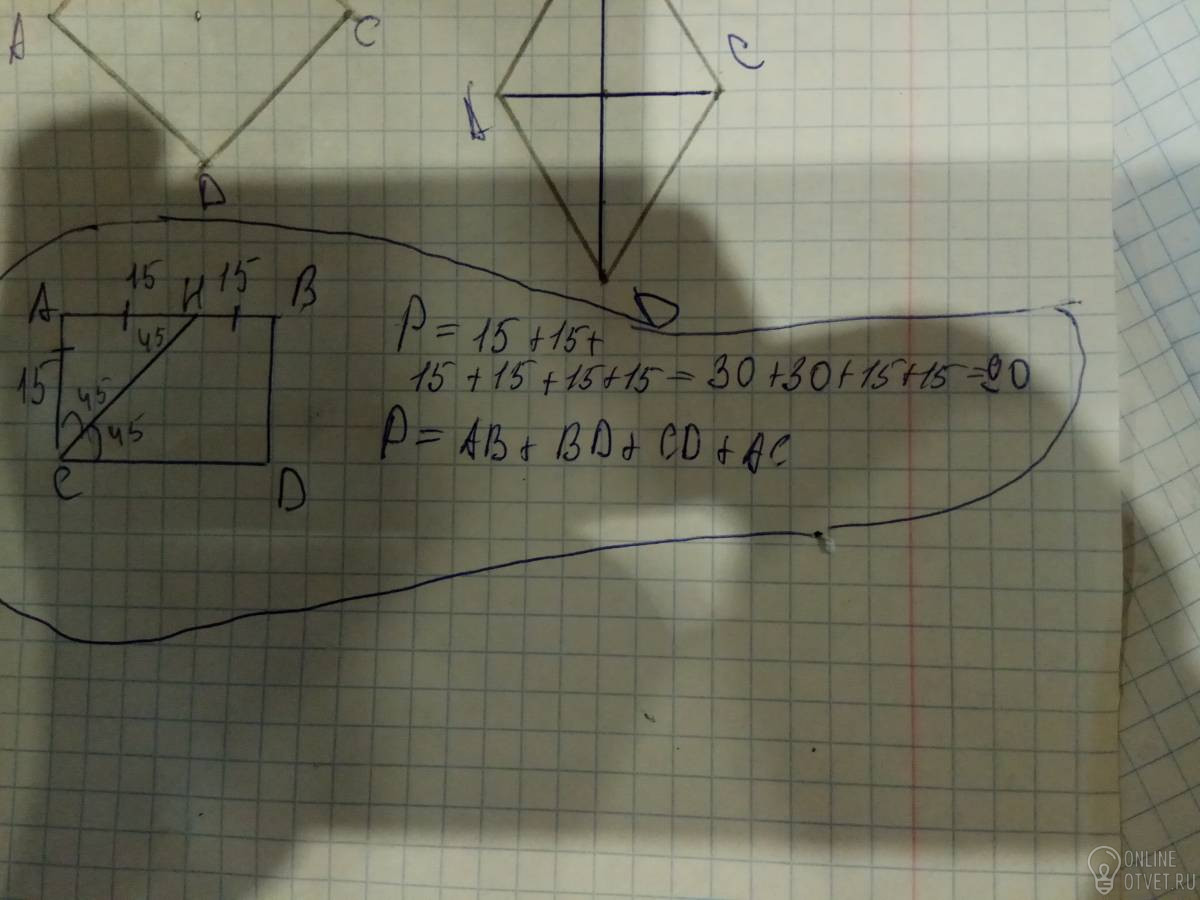 A
C
A
C
D
D
A 15 H 15 B
15
45
45
45
C
D
P = 15 + 15 +
15 + 15 + 15 + 15 = 30 + 30 + 15 + 15 = 90
P = AB + BD + CD + AC
ONLINE
OTVET.RU